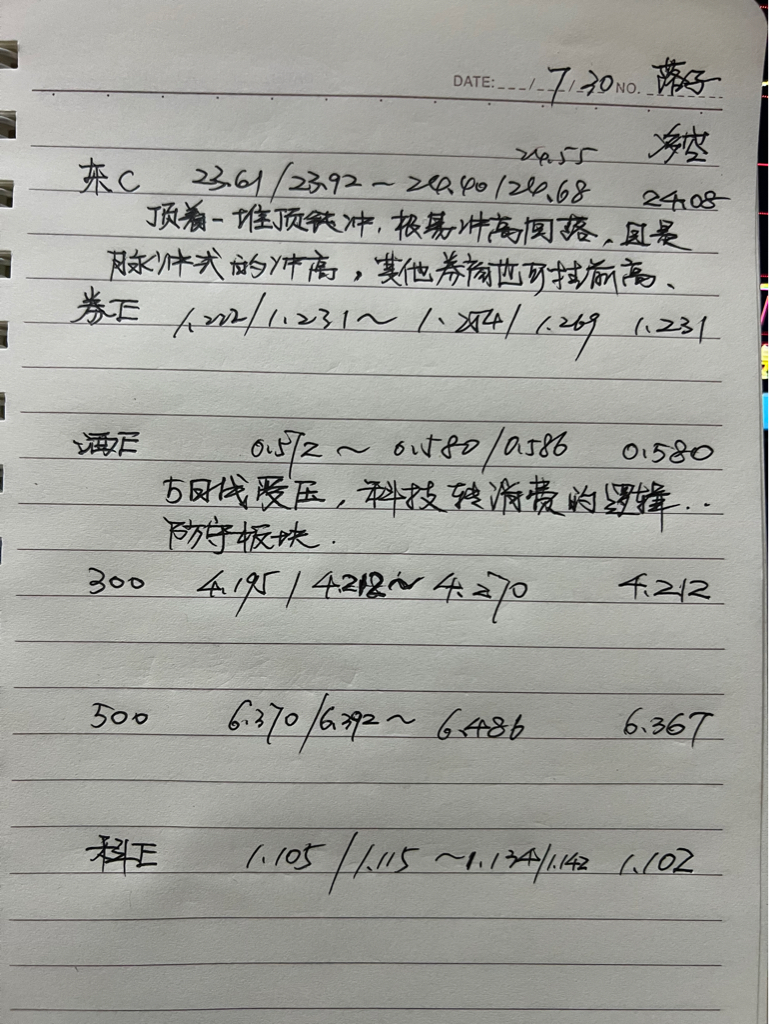 DATE: 7/30 NO. 落子
24.55 净空
东C 23.61/23.92~24.40/24.68 24.08
顶着一堆顶钝冲，极易冲高回落，且是
脉冲式的冲高，其他券商也可挂前高、
券E 1.222/1.231~1.254/1.269 1.231
酒E 0.572~0.580/0.586 0.580
5日线受压，科技转消费的逻辑..
防守板块.
300 4.195/4.218~4.270 4.212
500 6.370/6.392~6.486 6.367
科E 1.105/1.115~1.134/1.142 1.102